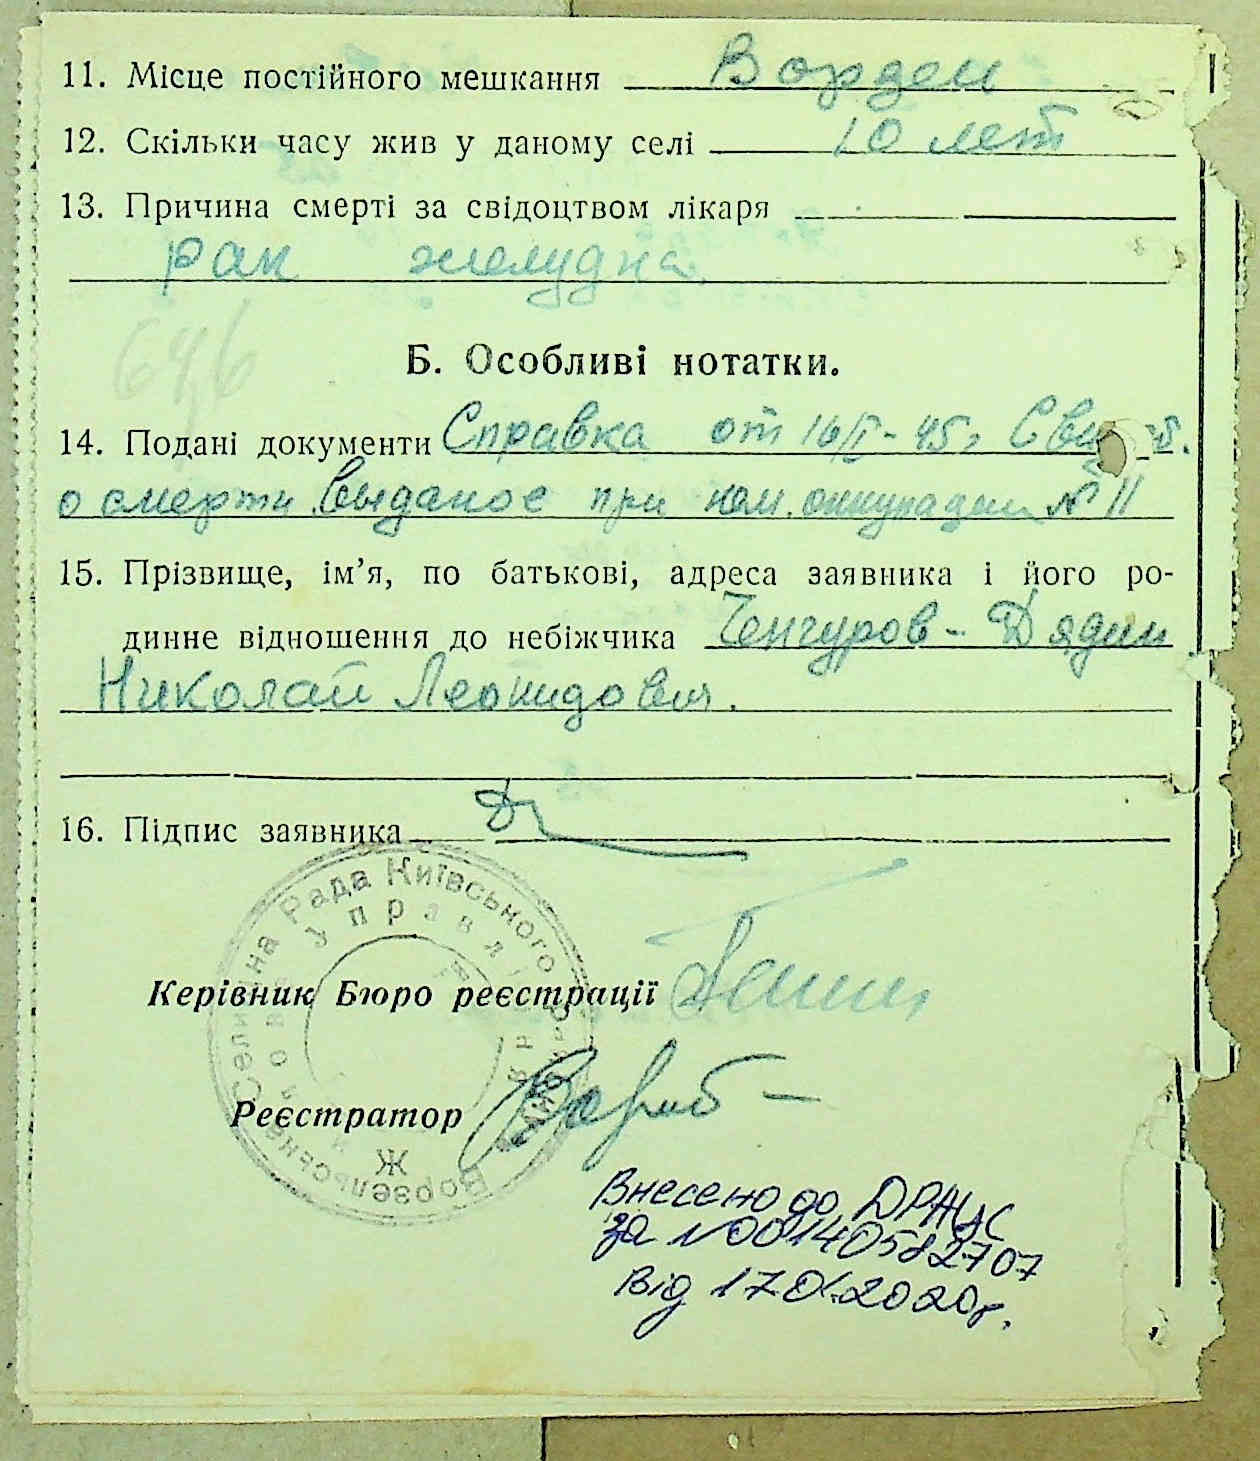 11. Місце постійного мешкання Ворзель
12. Скільки часу жив у даному селі 10 лет
13. Причина смерті за свідоцтвом лікаря
рак желудка
646
Б. Особливі нотатки.
14. Подані документи Справка от 16/I-45г Свид-в.
о смерти выданое при нем. оккупации № 11
15. Прізвище, ім’я, по батькові, адреса заявника і його ро-
динне відношення до небіжчика Ченгуров-Дядин
Николай Леонидович.
16. Підпис заявника
Рада Київського
Управління
Керівник Бюро реєстрації
Реєстратор
Ворзельська Селищна
Внесено до ДРАЦС
за №00140582707
від 17.01.2020р.